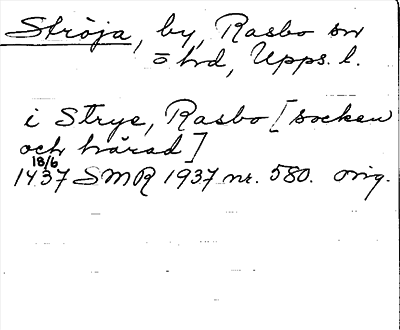 Ströja, by, Rasbo sn
= hd, Upps. l.
i Strye, Rasbo [socken
och härad]
18/6
1437 SMR 1937 nr. 580. orig.